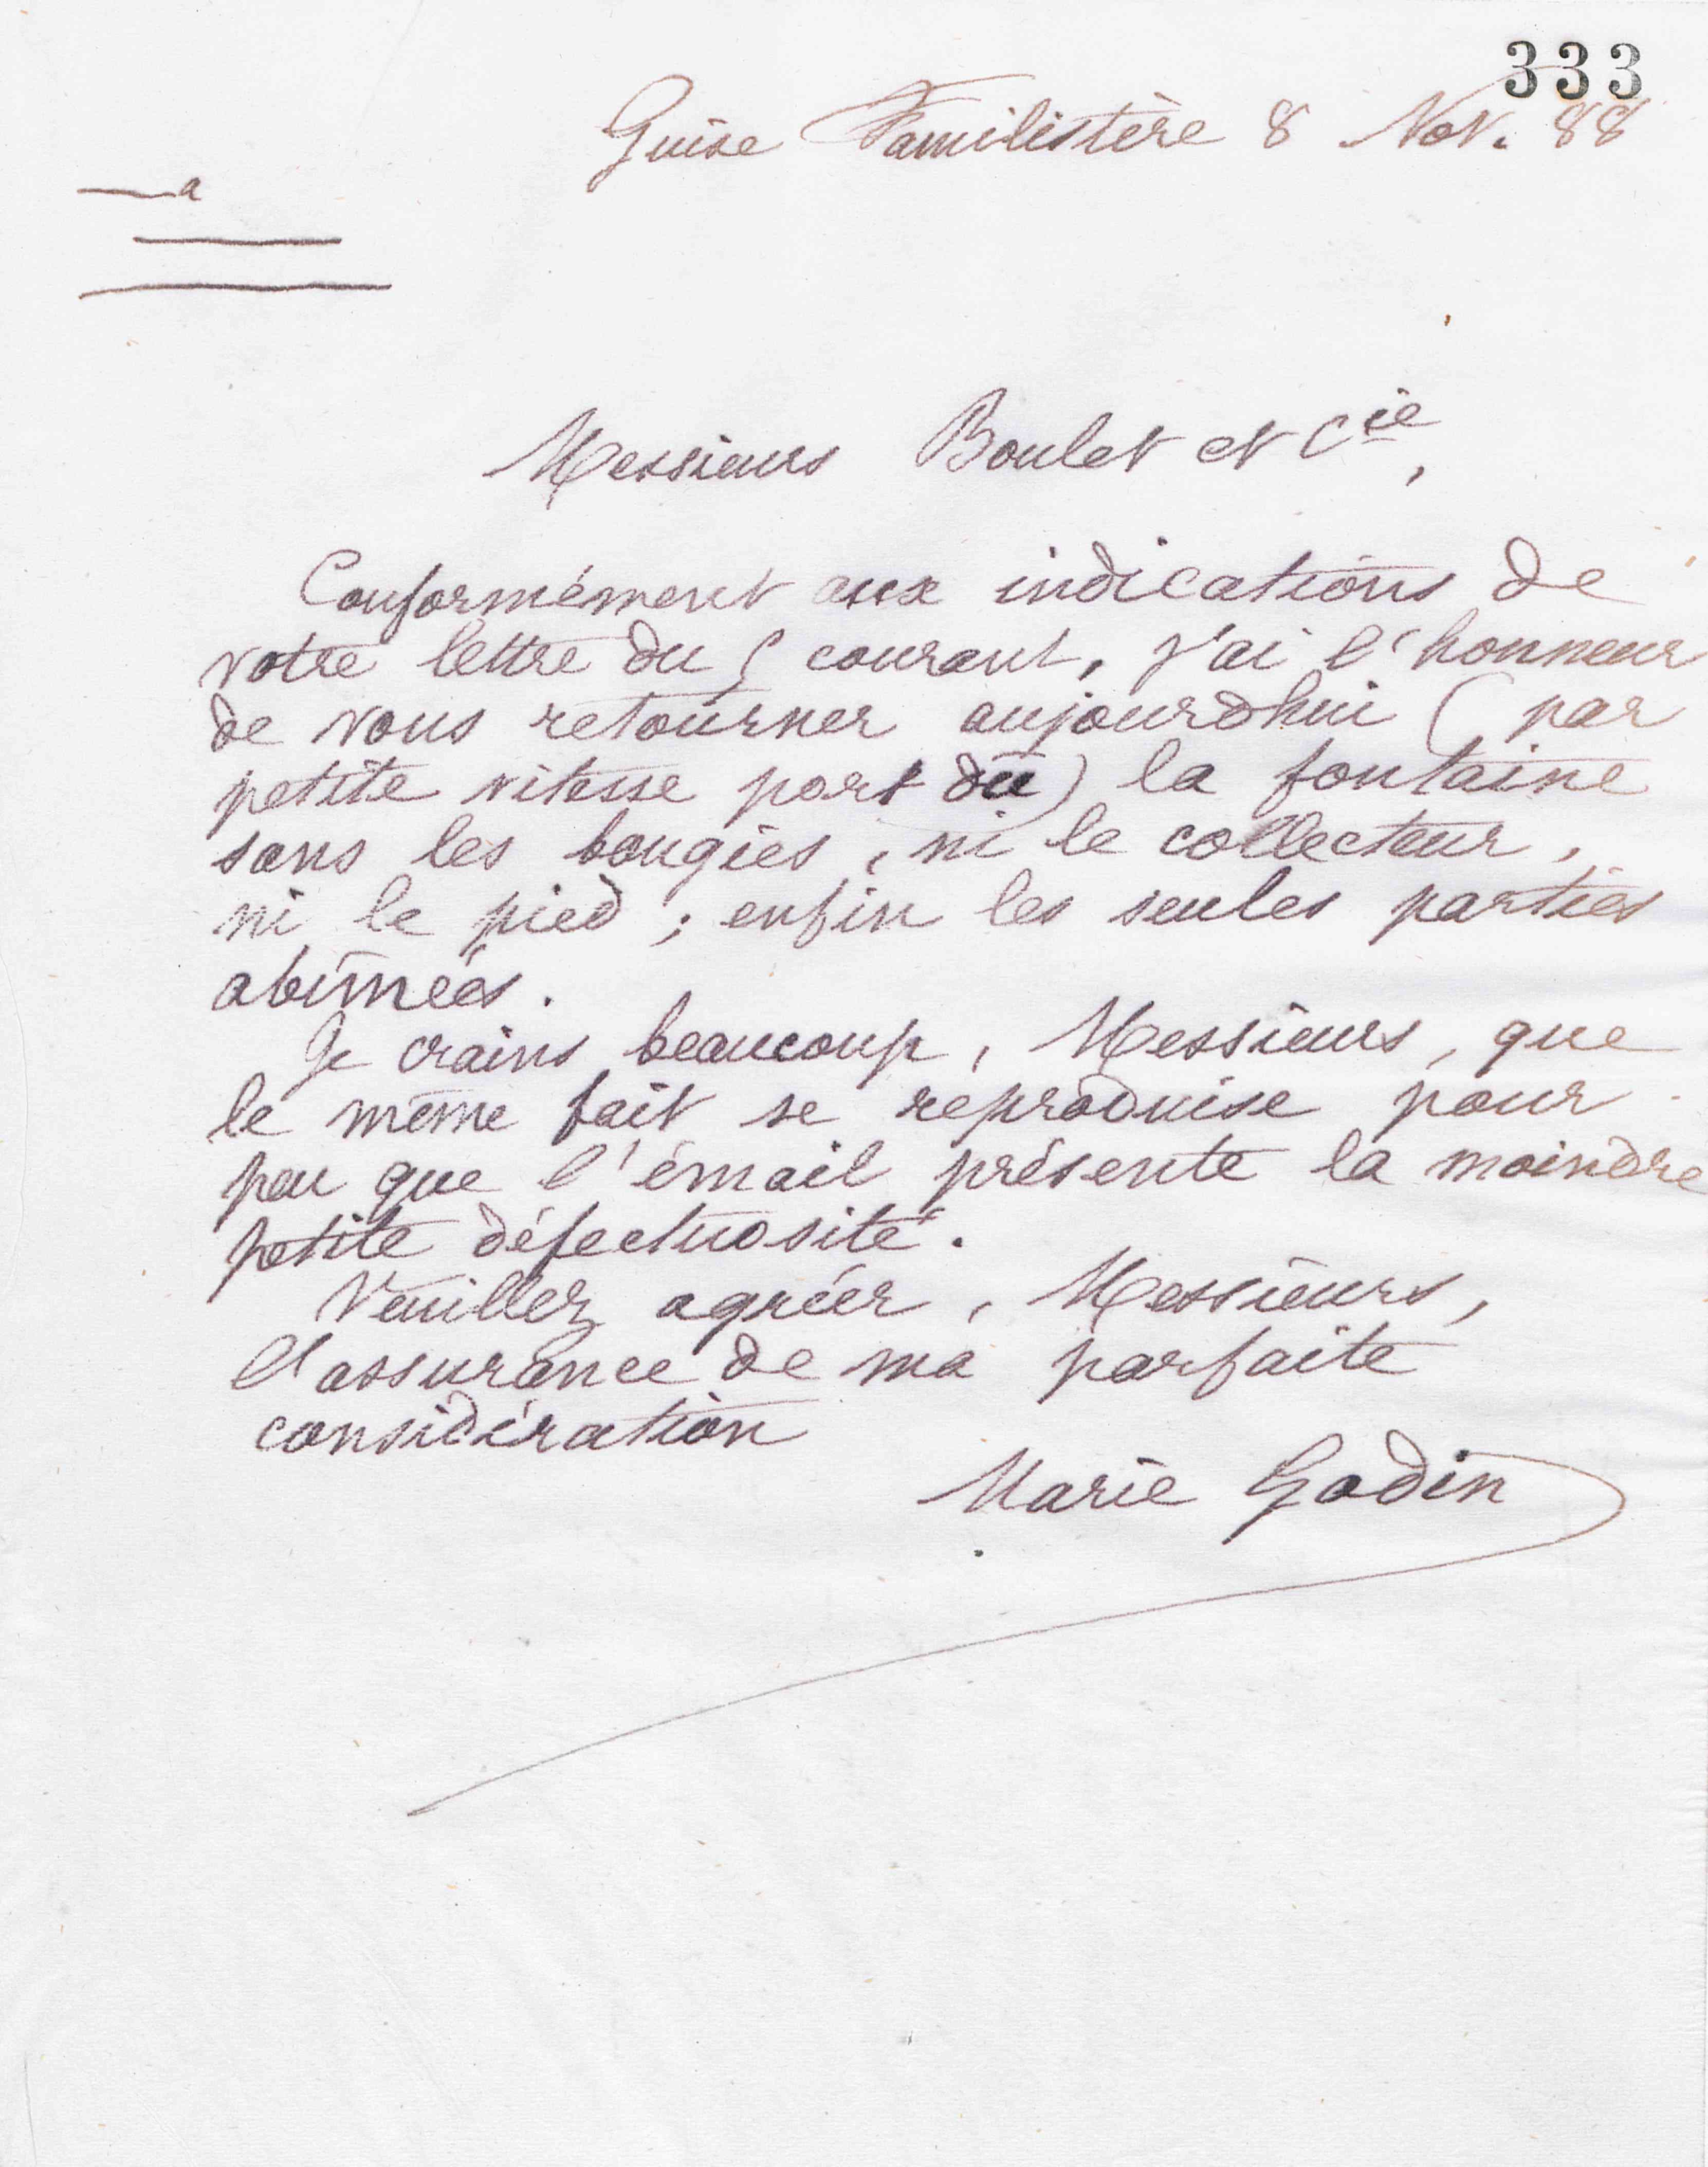 333
Guise Familistère 8 Nov. 88
a
Messieurs Boulet et Cie,
Conformément aux indications de
votre lettre du 5 courant, j'ai l'honneur
de vous retourner aujourdhui (par
petite vitesse port dû) la fontaine
sans les bougies, ni le collecteur,
ni le pied ; enfin les seules parties
abîmées.
Je crains beaucoup, Messieurs, que
le même fait se reproduise pour
peu que l'émail présente la moindre
petite défectuosité.
Veuillez agréer, Messieurs,
l'assurance de ma parfaite
considération
Marie Godin